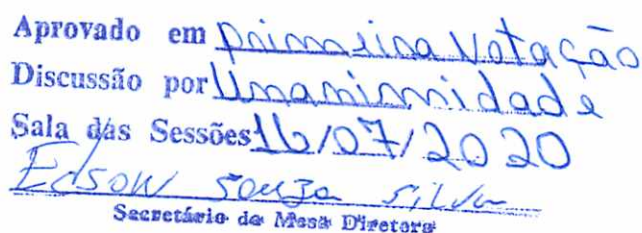 Aprovado em primeira Votação
Discussão por Unanimidade
Sala das Sessões 16/07/2020
Edson Souza Silva
Secretário da Mesa Diretora